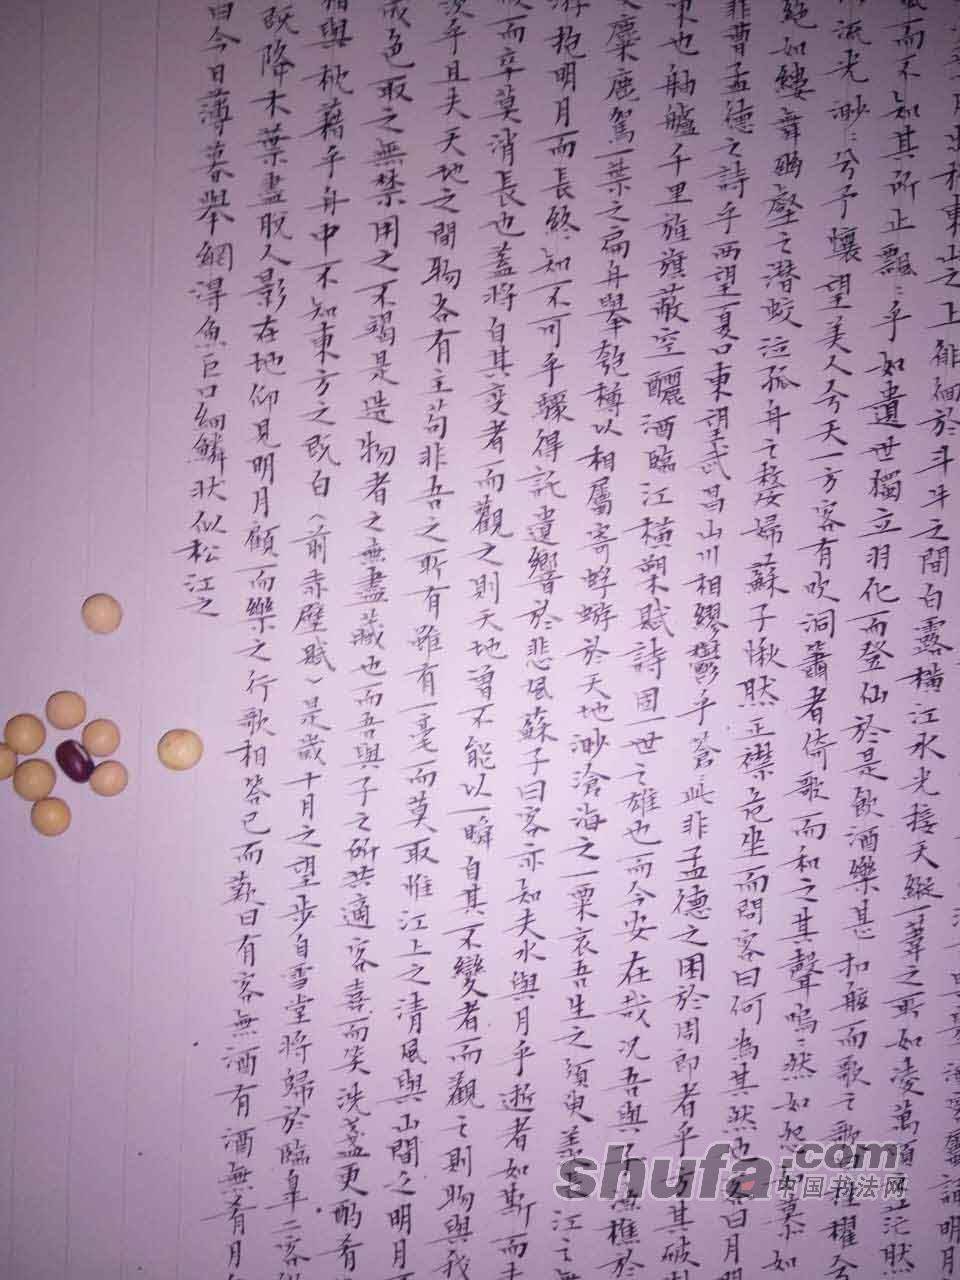 誦明月
月出於東山之上徘徊於斗牛之間白露橫江水光接天縱一葦之所如凌萬頃之茫然
而不知其所止飄〻乎如遺世獨立羽化而登仙於是飲酒樂甚扣舷而歌之歌曰桂櫂兮
流光渺〻兮予懷望美人兮天一方客有吹洞簫者倚歌而和之其聲嗚〻然如怨如慕如
絕如縷舞幽壑之潛蛟泣孤舟之嫠婦蘇子愀然正襟危坐而問客曰何為其然也客曰月
非曹孟德之詩乎西望夏口東望武昌山川相繆鬱乎蒼〻此非孟德之困於周郎者乎方其破
東也舳艫千里旌旗蔽空釃酒臨江橫槊賦詩固一世之雄也而今安在哉況吾與子漁樵於
麋鹿駕一葉之扁舟舉匏樽以相屬寄蜉蝣於天地渺滄海之一粟哀吾生之須臾羨長江之無
遊抱明月而長終知不可乎驟得託遺響於悲風蘇子曰客亦知夫水與月乎逝者如斯而未
而卒莫消長也蓋將自其变者而觀之則天地曾不能以一瞬自其不變者而觀之則物與我
羨乎且夫天地之間物各有主苟非吾之所有雖有一毫而莫取惟江上之清風與山間之明月
成色取之無禁用之不竭是造物者之無盡藏也而吾與子之所共適客喜而笑洗盞更酌肴
相與枕藉乎舟中不知東方之既白（前赤壁賦）是歲十月之望步自雪堂將歸於臨皋二客從
既降木葉盡脫人影在地仰見明月顧而樂之行歌相答已而歎曰有客無酒有酒無肴月
曰今日薄暮舉網得魚巨口細鱗狀似松江之
shufa.com
中国书法网